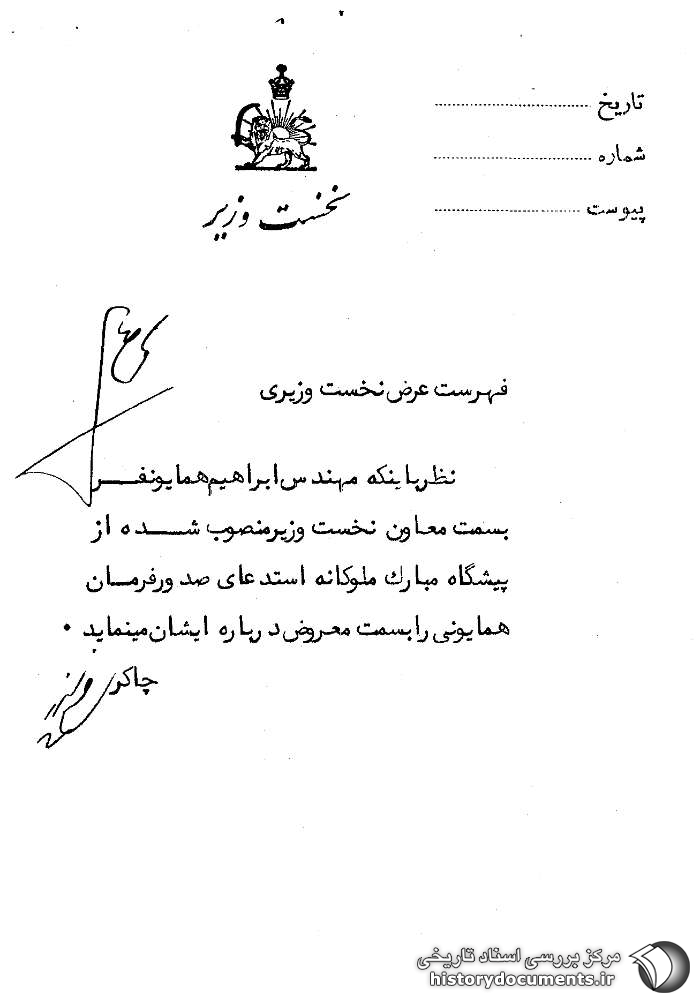 تاریخ
شماره
پیوست
نخست وزیر
فهرست عرض نخست وزیری
نظر باینکه مهندس ابراهیم همایونفر
بسمت معاون نخست وزیر منصوب شده از
پیشگاه مبارك ملوکانه استدعای صدور فرمان
همایونی را بسمت معروض درباره ایشان مینماید .
چاکر
مرکز بررسی اسناد تاریخی
historydocuments.ir